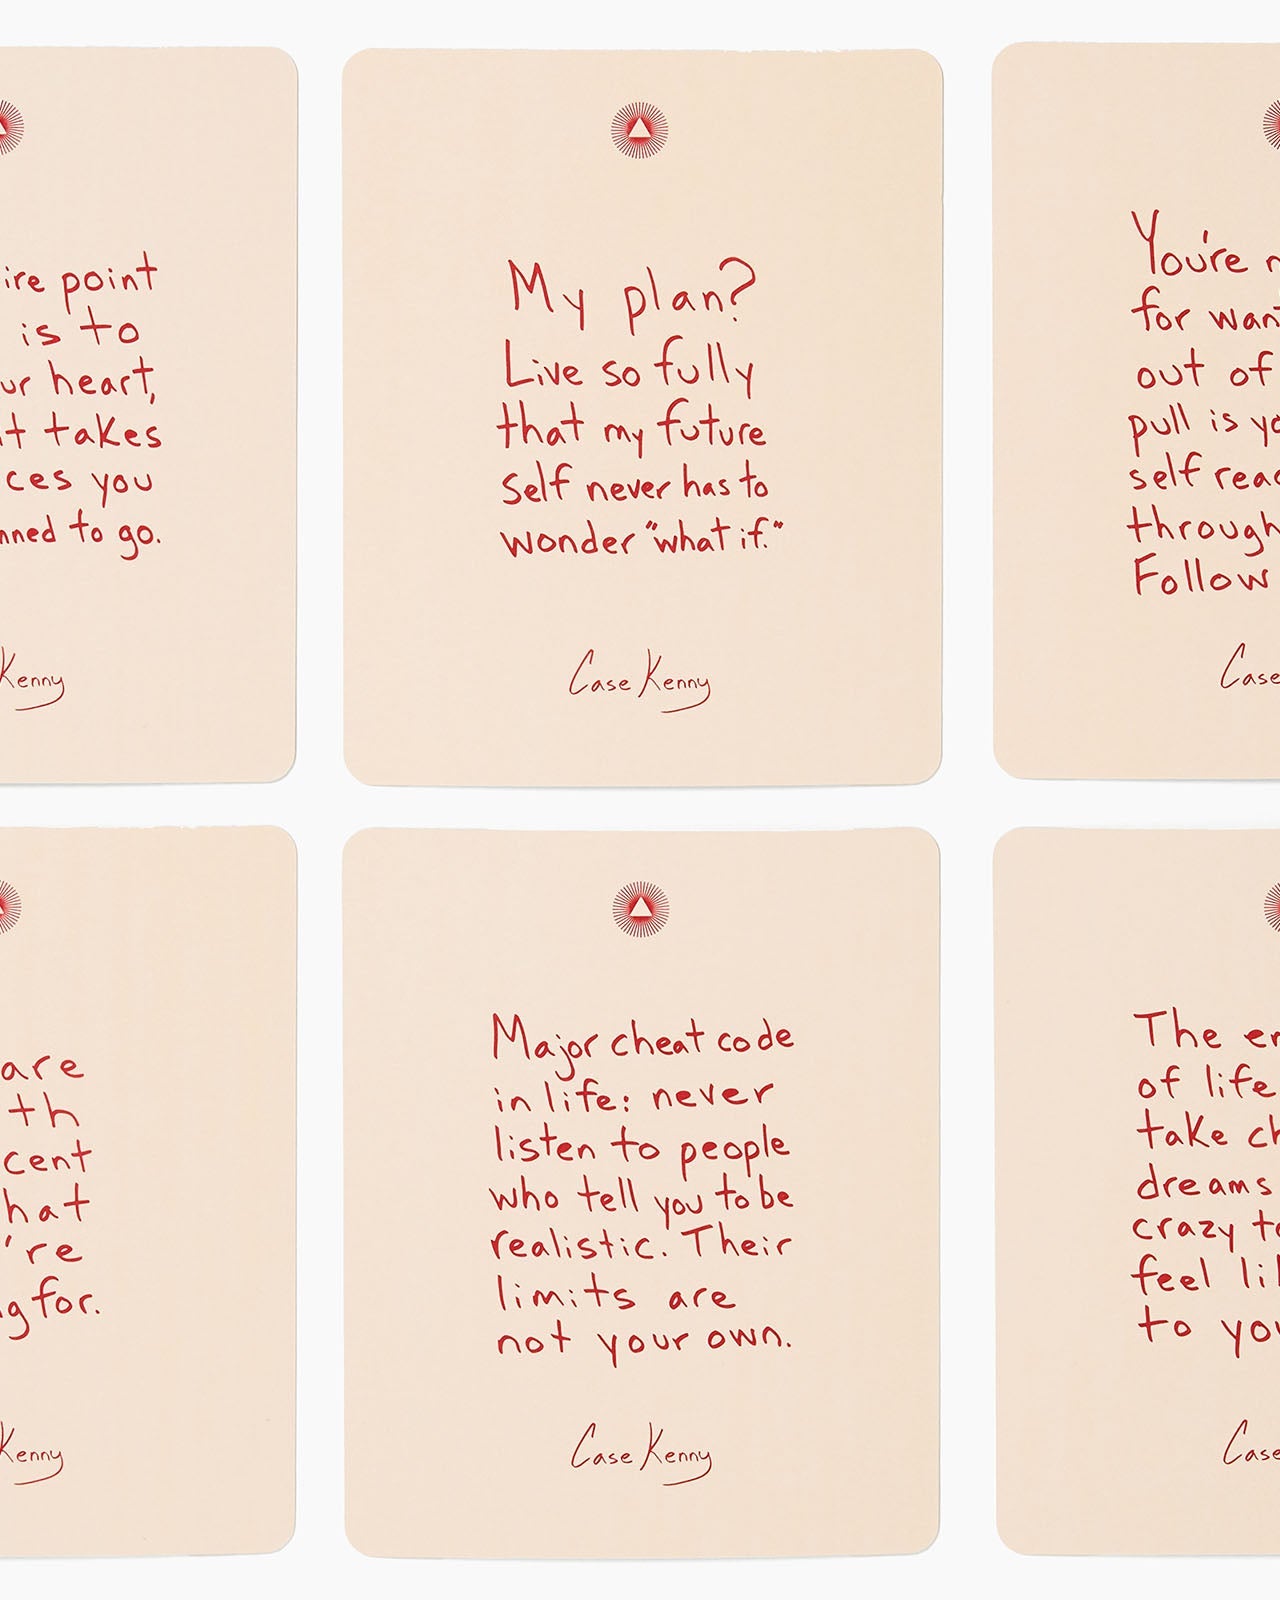 ire point
is to
ur heart,
it takes
ces you
nned to go.
Kenny
My plan?
Live so fully
that my future
self never has to
wonder "what if."
Case Kenny
You're
for wan
out of
pull is yo
self read
through
Follow
Case
are
th
cent
hat
're
g for.
Kenny
Major cheat code
in life: never
listen to people
who tell you to be
realistic. Their
limits are
not your own.
Case Kenny
The en
of life
take ch
dreams
crazy to
feel li
to you
Case